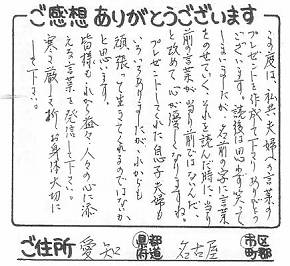 ご感想 ありがとうございます
この度は、私共 夫婦への言葉の
プレゼントを作成して下さりありがとう
ございます。読後は思わず笑って
しまいましたが、名前の字に言葉
をのせていく、それを読んだ時に当り
前の言葉が当り前ではないんだ
と改めて心が優しくなりますね。
プレゼントしてくれた息子夫婦も
いろいろありますが、これからも
頑張って生きてくれるのではないか
と思います。
皆様もこれから益々人々の心に添
える言葉を発信して下さい。
寒さ厳しき折、お身体大切に
して下さい。
ご住所 愛知 都道府県 名古屋 市区町郡